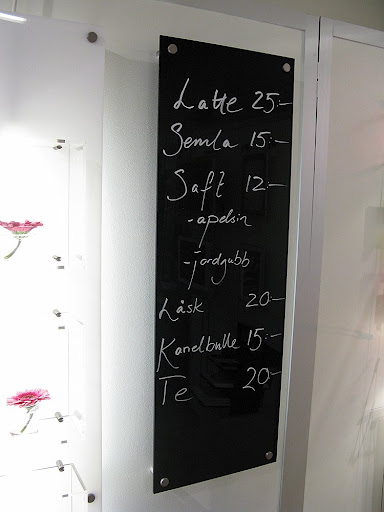 Latte 25:-
Semla 15:-
Saft 12:-
-apelsin
-jordgubb
Läsk 20:-
Kanelbulle 15:-
Te 20:-